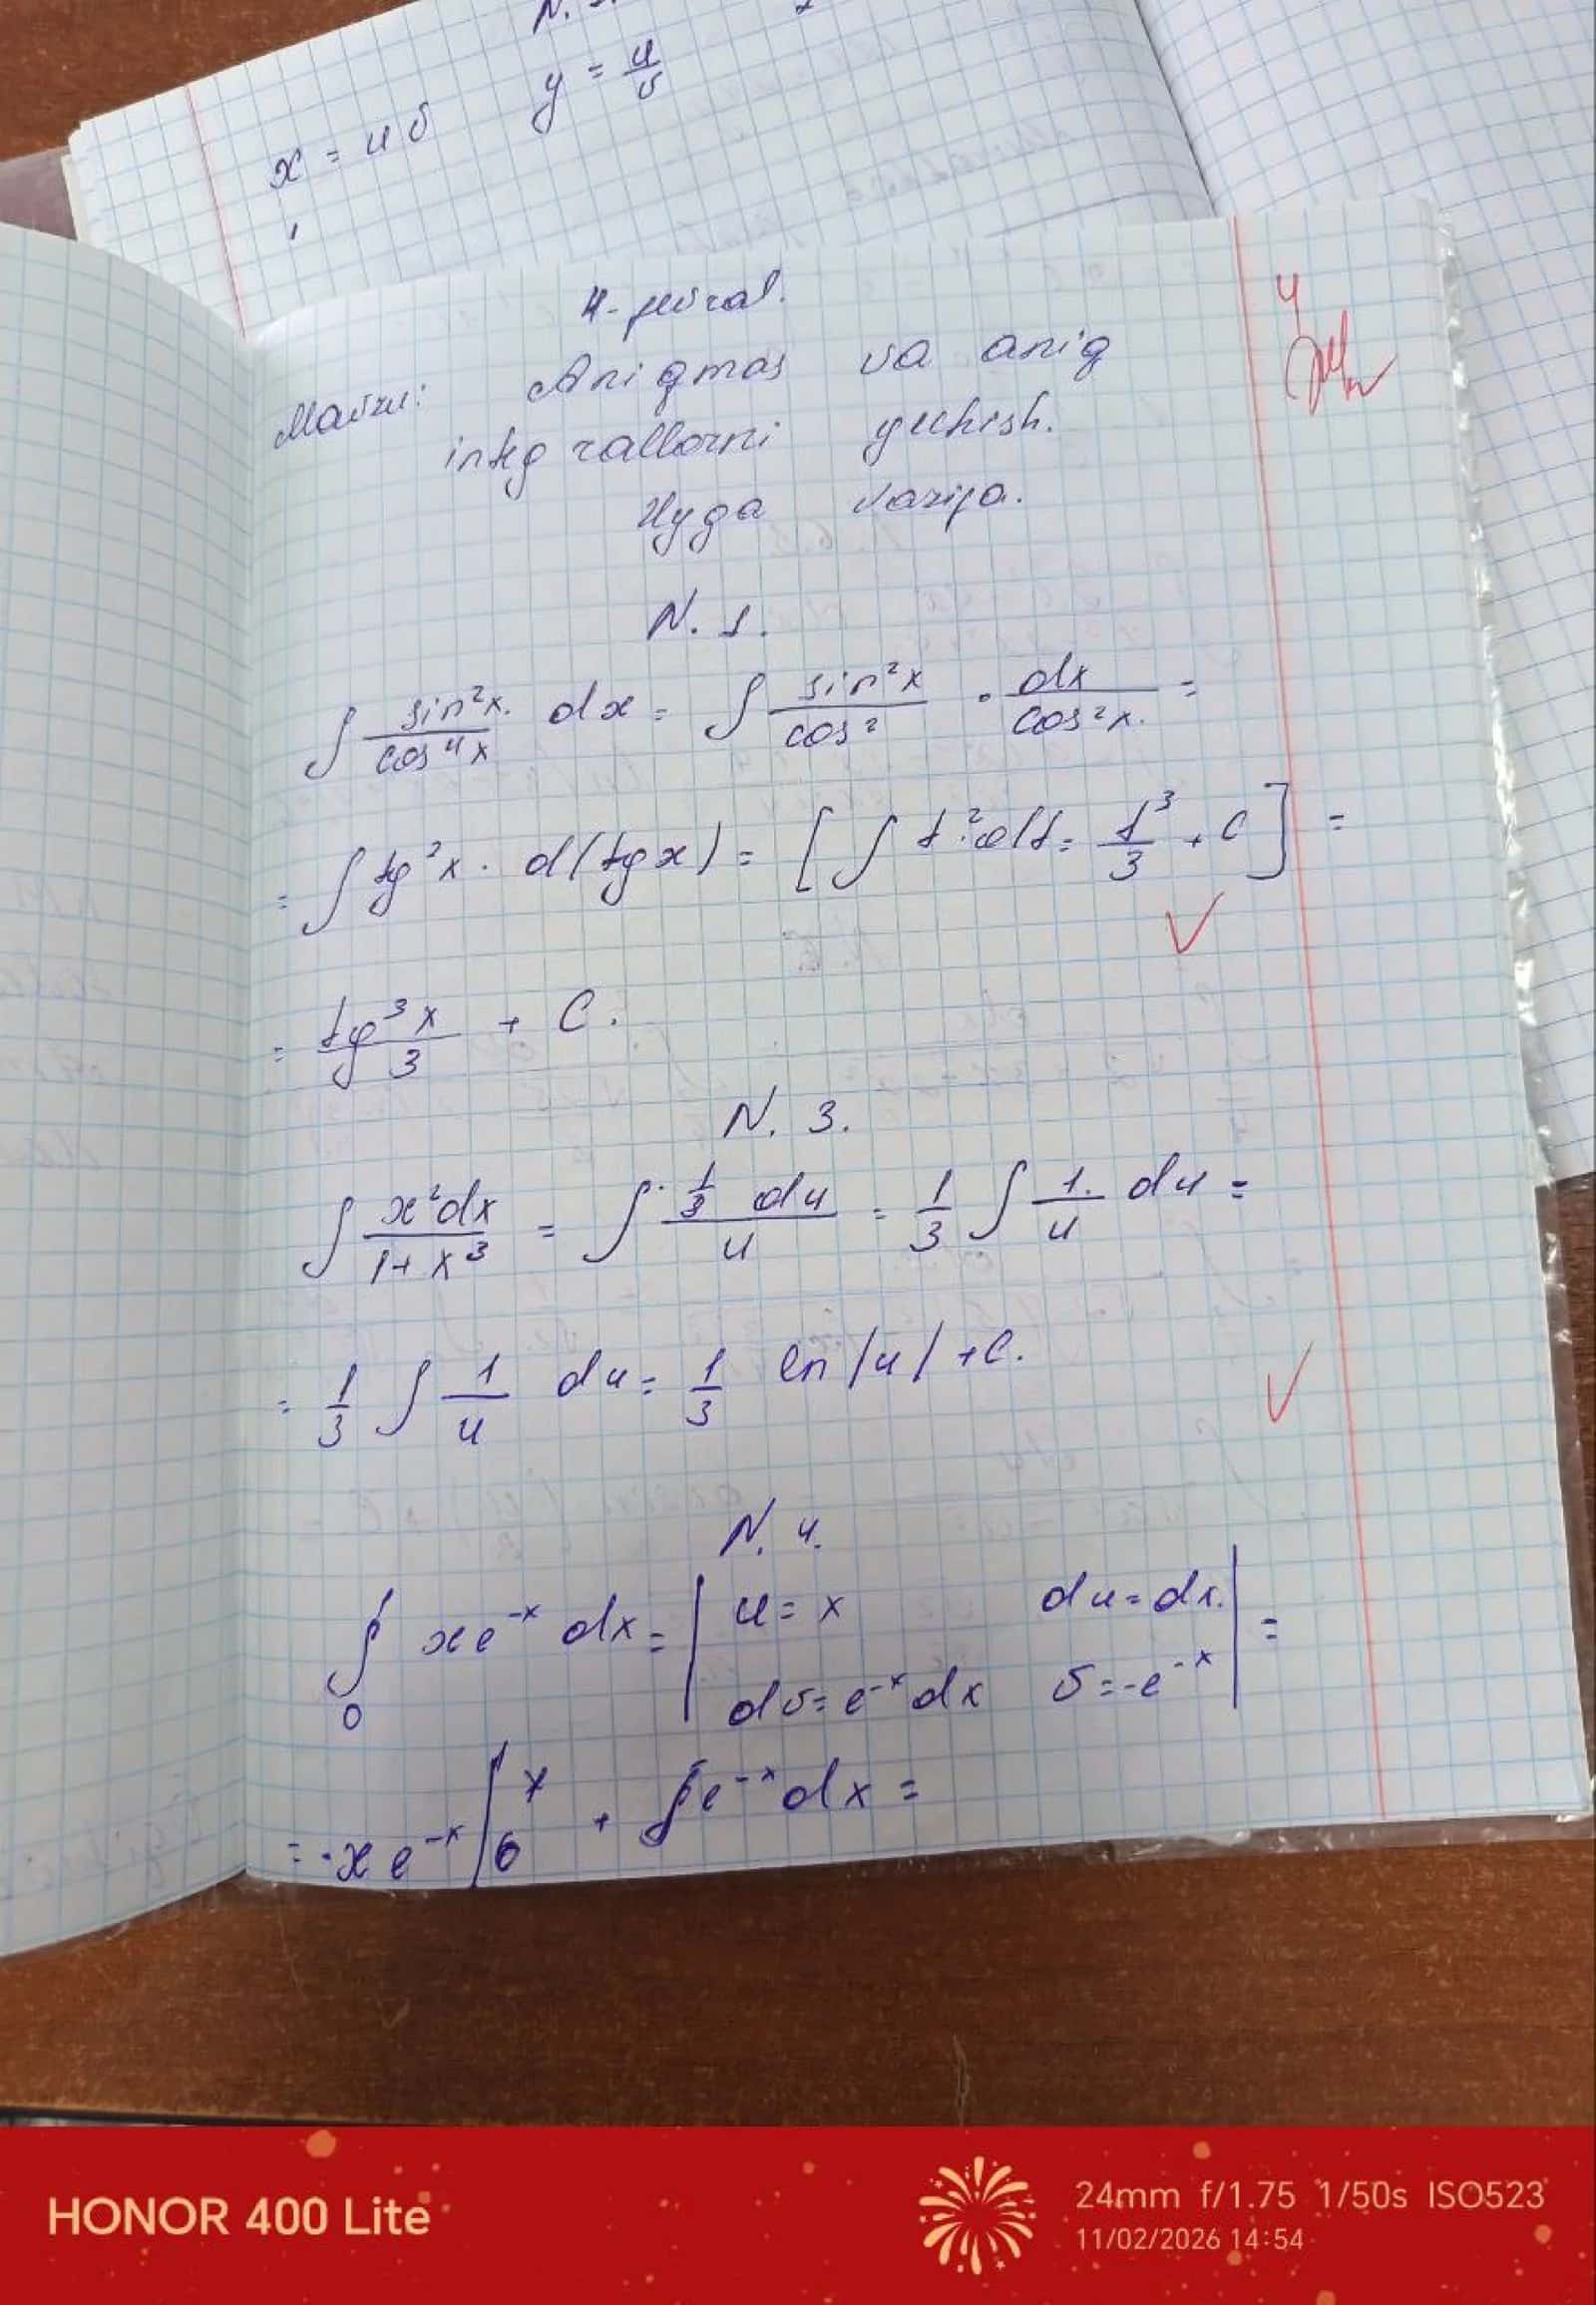 x = uv y = u/v
4-fevral.
Mavzu: Aniqmas va aniq
integrallarni yechish.
Uyga vazifa.
4
N. 1.
∫ sin²x/cos⁴x dx = ∫ sin²x/cos² · dx/cos²x =
= ∫ tg²x · d(tgx) = [∫ t² dt = t³/3 + C] =
= tg³x/3 + C.
N. 3.
∫ x²dx/1+x³ = ∫ 1/3 du/u = 1/3 ∫ 1/u du =
= 1/3 ∫ 1/u du = 1/3 ln|u| + C.
N. 4.
∫₀¹ xe⁻ˣ dx = | u = x du = dx. dv = e⁻ˣdx v = -e⁻ˣ | =
= -xe⁻ˣ |₀¹ + ∫e⁻ˣdx =
HONOR 400 Lite
24mm f/1.75 1/50s ISO523
11/02/2026 14:54